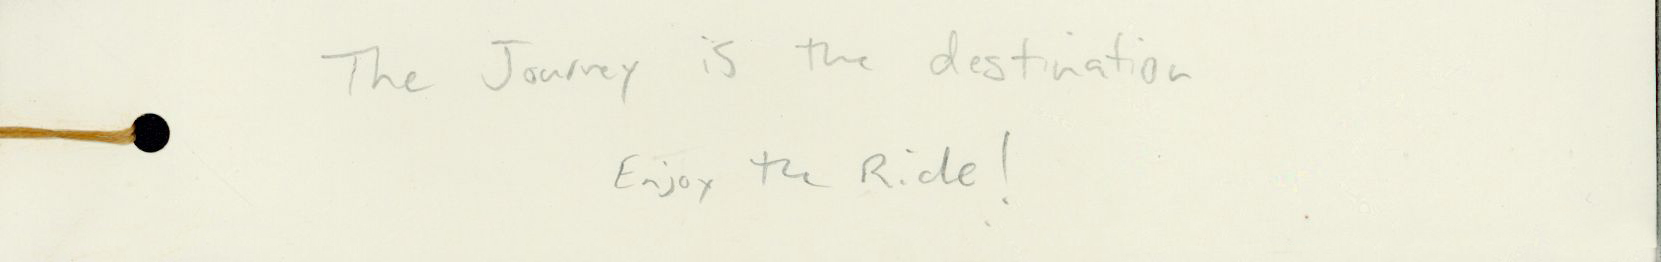 The Journey is the destination
Enjoy the Ride!